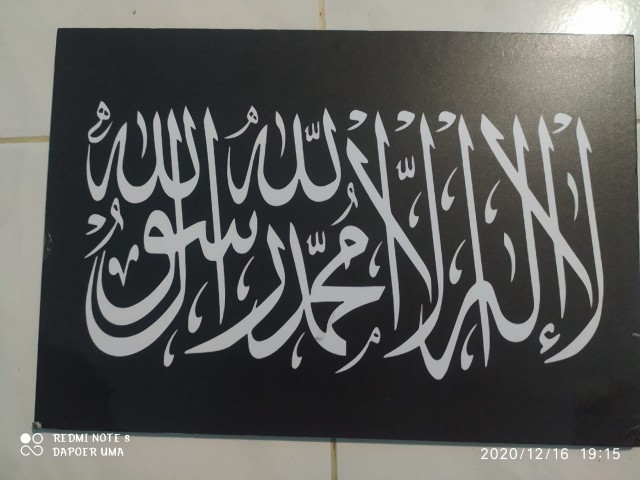 لا إله إلا الله محمد رسول الله
REDMI NOTE 8
DAPOER UMA
2020/12/16 19:15